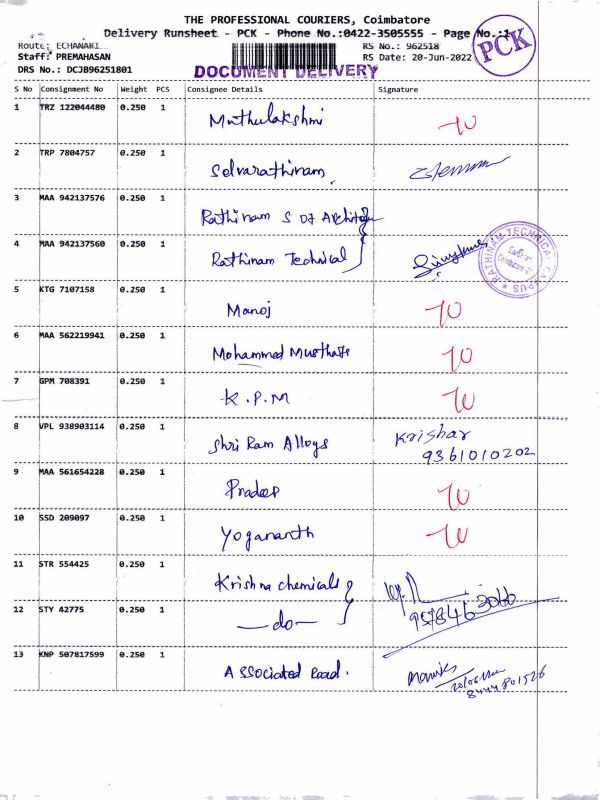 THE PROFESSIONAL COURIERS, Coimbatore
Delivery Runsheet - PCK - Phone No.:0422-3505555 - Page No.:1
Route: ECHANARI
RS No.: 962518
Staff: PREMAHASAN
RS Date: 20-Jun-2022
DRS No.: DCJB96251801
DOCUMENT DELIVERY
PCK
S No Consignment No Weight PCS Consignee Details Signature
1 TRZ 122044480 0.250 1 Muthulakshmi
2 TRP 7804757 0.250 1 Selvarathinam
3 MAA 942137576 0.250 1 Rathinam S of
4 MAA 942137560 0.250 1 Rathinam Technical
RATHINAM TECHNICAL CAMPUS
5 KTG 7107158 0.250 1 Manoj
6 MAA 562219941 0.250 1 Mohammed
7 GPM 708391 0.250 1 K.P.M
8 VPL 938903114 0.250 1 Shri Ram Alloys Krishar
9361010202
9 MAA 561654228 0.250 1 Pradeep
10 SSD 209097 0.250 1 Yogananth
11 STR 554425 0.250 1 Krishna chemicals
12 STY 42775 0.250 1 —do—
13 KNP 507817599 0.250 1 Associated Road.
8444801526